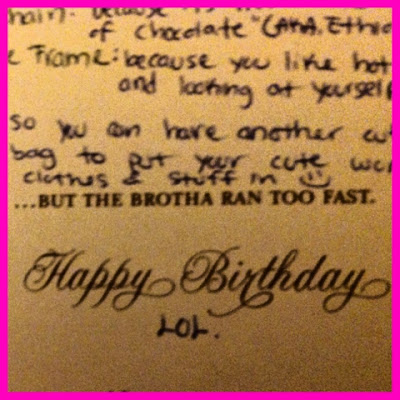 hain: because it's
of chocolate" (AKA. Ethio
e Frame: because you like hot
and looking at yourself
so you can have another cut
bag to put your cute wor
clothes & stuff in
...BUT THE BROTHA RAN TOO FAST.
Happy Birthday
LOL.